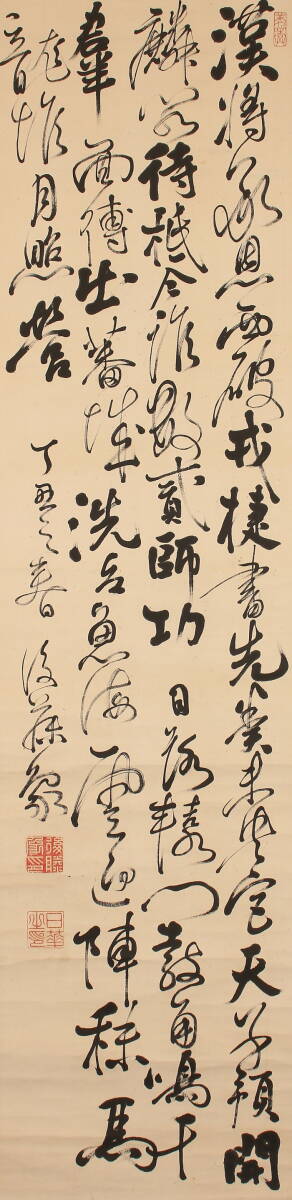 漢將承恩西破戎捷書先奏未央宮天子預開
麟閣待祗今誰數貳師功 日落轅門鼓角鳴干
羣面縛出蕃城洗兵魚海雲迎陣秣馬
龍堆月照營
丁丑之春 後藤象